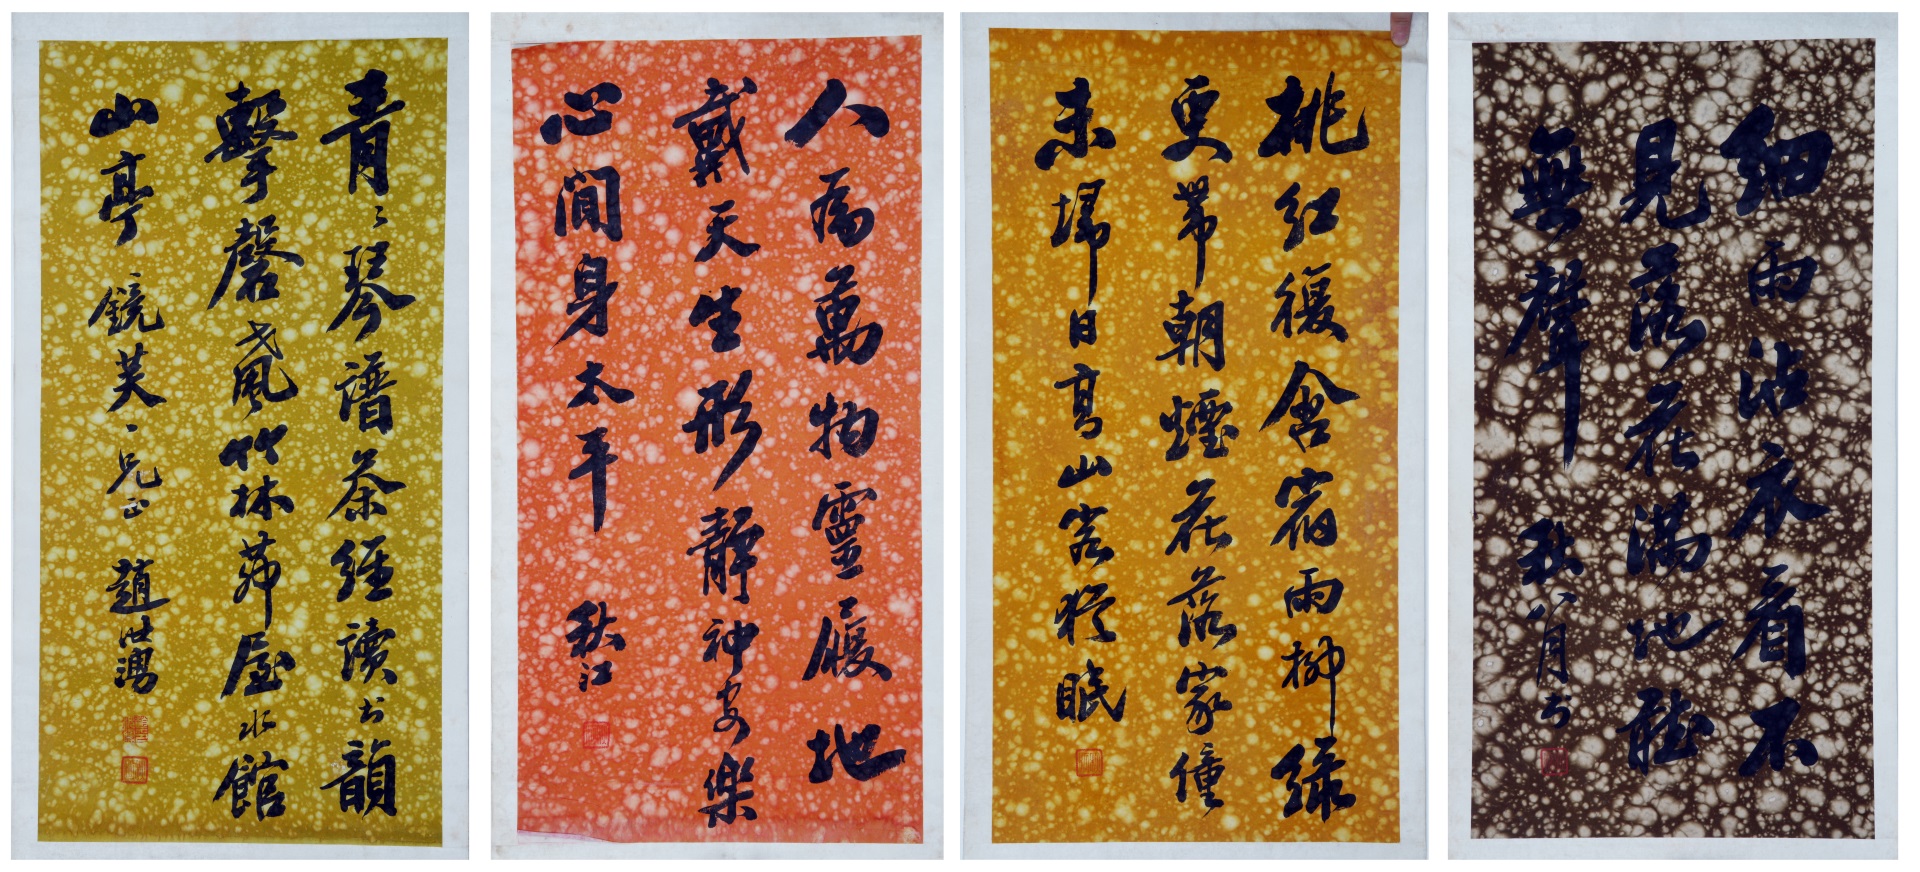 細雨沾衣看不
見落花滿地聽
無聲
秋八月书
桃紅復含宿雨柳綠
更帶朝煙花落家僮
未埽日高山客猶眠
人為萬物靈履地
戴天生形靜神安樂
心閒身太平
秋江
青〻琴譜茶經讀书韻
擊磬風竹林茆屋水館
山亭
鏡芙一兄正
趙世鴻